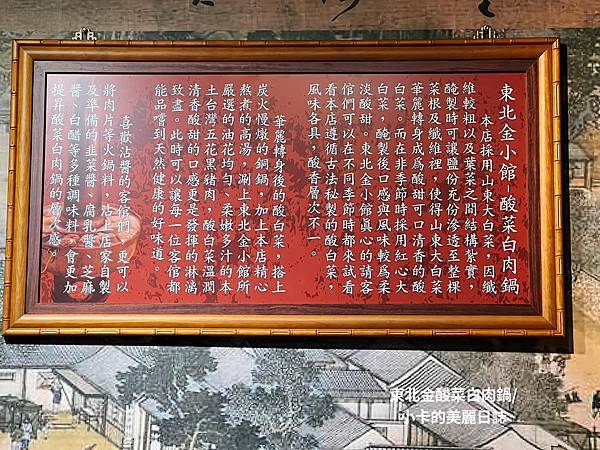 東北金小館-酸菜白肉鍋
本店採用山東大白菜，因纖
維較粗以及葉菜之間結構紮實，
醃製時可讓鹽份充份滲透至整棵
菜根及纖維裡，使得山東大白菜
華麗轉身成為酸甜可口清香的酸
白菜。而在非季節時採用紅心大
白菜，醃製後口感與風味較為柔
淡酸甜。東北金小館真心的請客
倌們可以在不同季節時都來試看
看本店遵循古法秘製的酸白菜，
風味各具，酸香層次不一。
華麗轉身後的酸白菜，搭上
炭火慢燉的銅鍋，加上本店精心
熬煮的高湯，涮上東北金小館所
嚴選的油花均勻、柔嫩多汁的本
土台灣五花黑豬肉，酸白菜溫潤
清香酸甜的口感更是發揮的淋漓
致盡。此時可以讓每一位客倌都
能品嚐到天然健康的好味道。
喜歡沾醬的客倌們，更可以
將肉片等火鍋料，沾上店家自製
及準備的韭菜醬、腐乳醬、芝麻
醬、白醋等多種調味料，會更加
提昇酸菜白肉鍋的層次感。
東北金酸菜白肉鍋/
小卡的美麗日誌